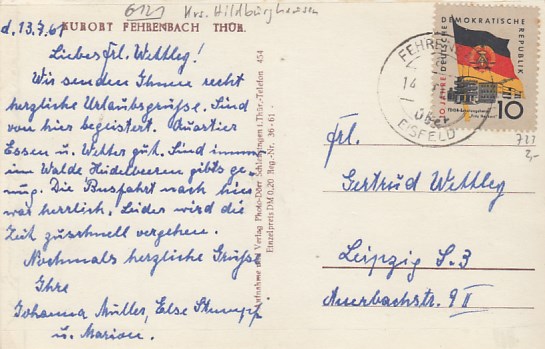 6121 Krs. Hildburghausen
KURORT FEHRENBACH THÜR.
d. 13.7.61
Liebes Frl. Wettley!
Wir senden Ihnen recht
herzliche Urlaubsgrüße. Sind
von hier begeistert. Quartier
Essen u. Wetter gut. Sind immer
im Walde Heidelbeeren gibts ge-
nug. Die Busfahrt nach hier
war herrlich. Leider wird die
Zeit zu schnell vergehen.
Nochmals herzliche Grüße
Ihre
Johanna Müller, Else Stumpf
u. Marion.
Aufnahme und Verlag Photo-Dörr Schleusingen i. Thür.-Telefon 454
Einzelpreis DM 0,20 Reg.-Nr. 36 - 61 -
10 JAHRE DEUTSCHE DEMOKRATISCHE REPUBLIK
10
FEHREN
14
über
EISFELD
723
2,-
Frl.
Gertrud Wettley
Leipzig S.3
Auerbachstr. 9 II